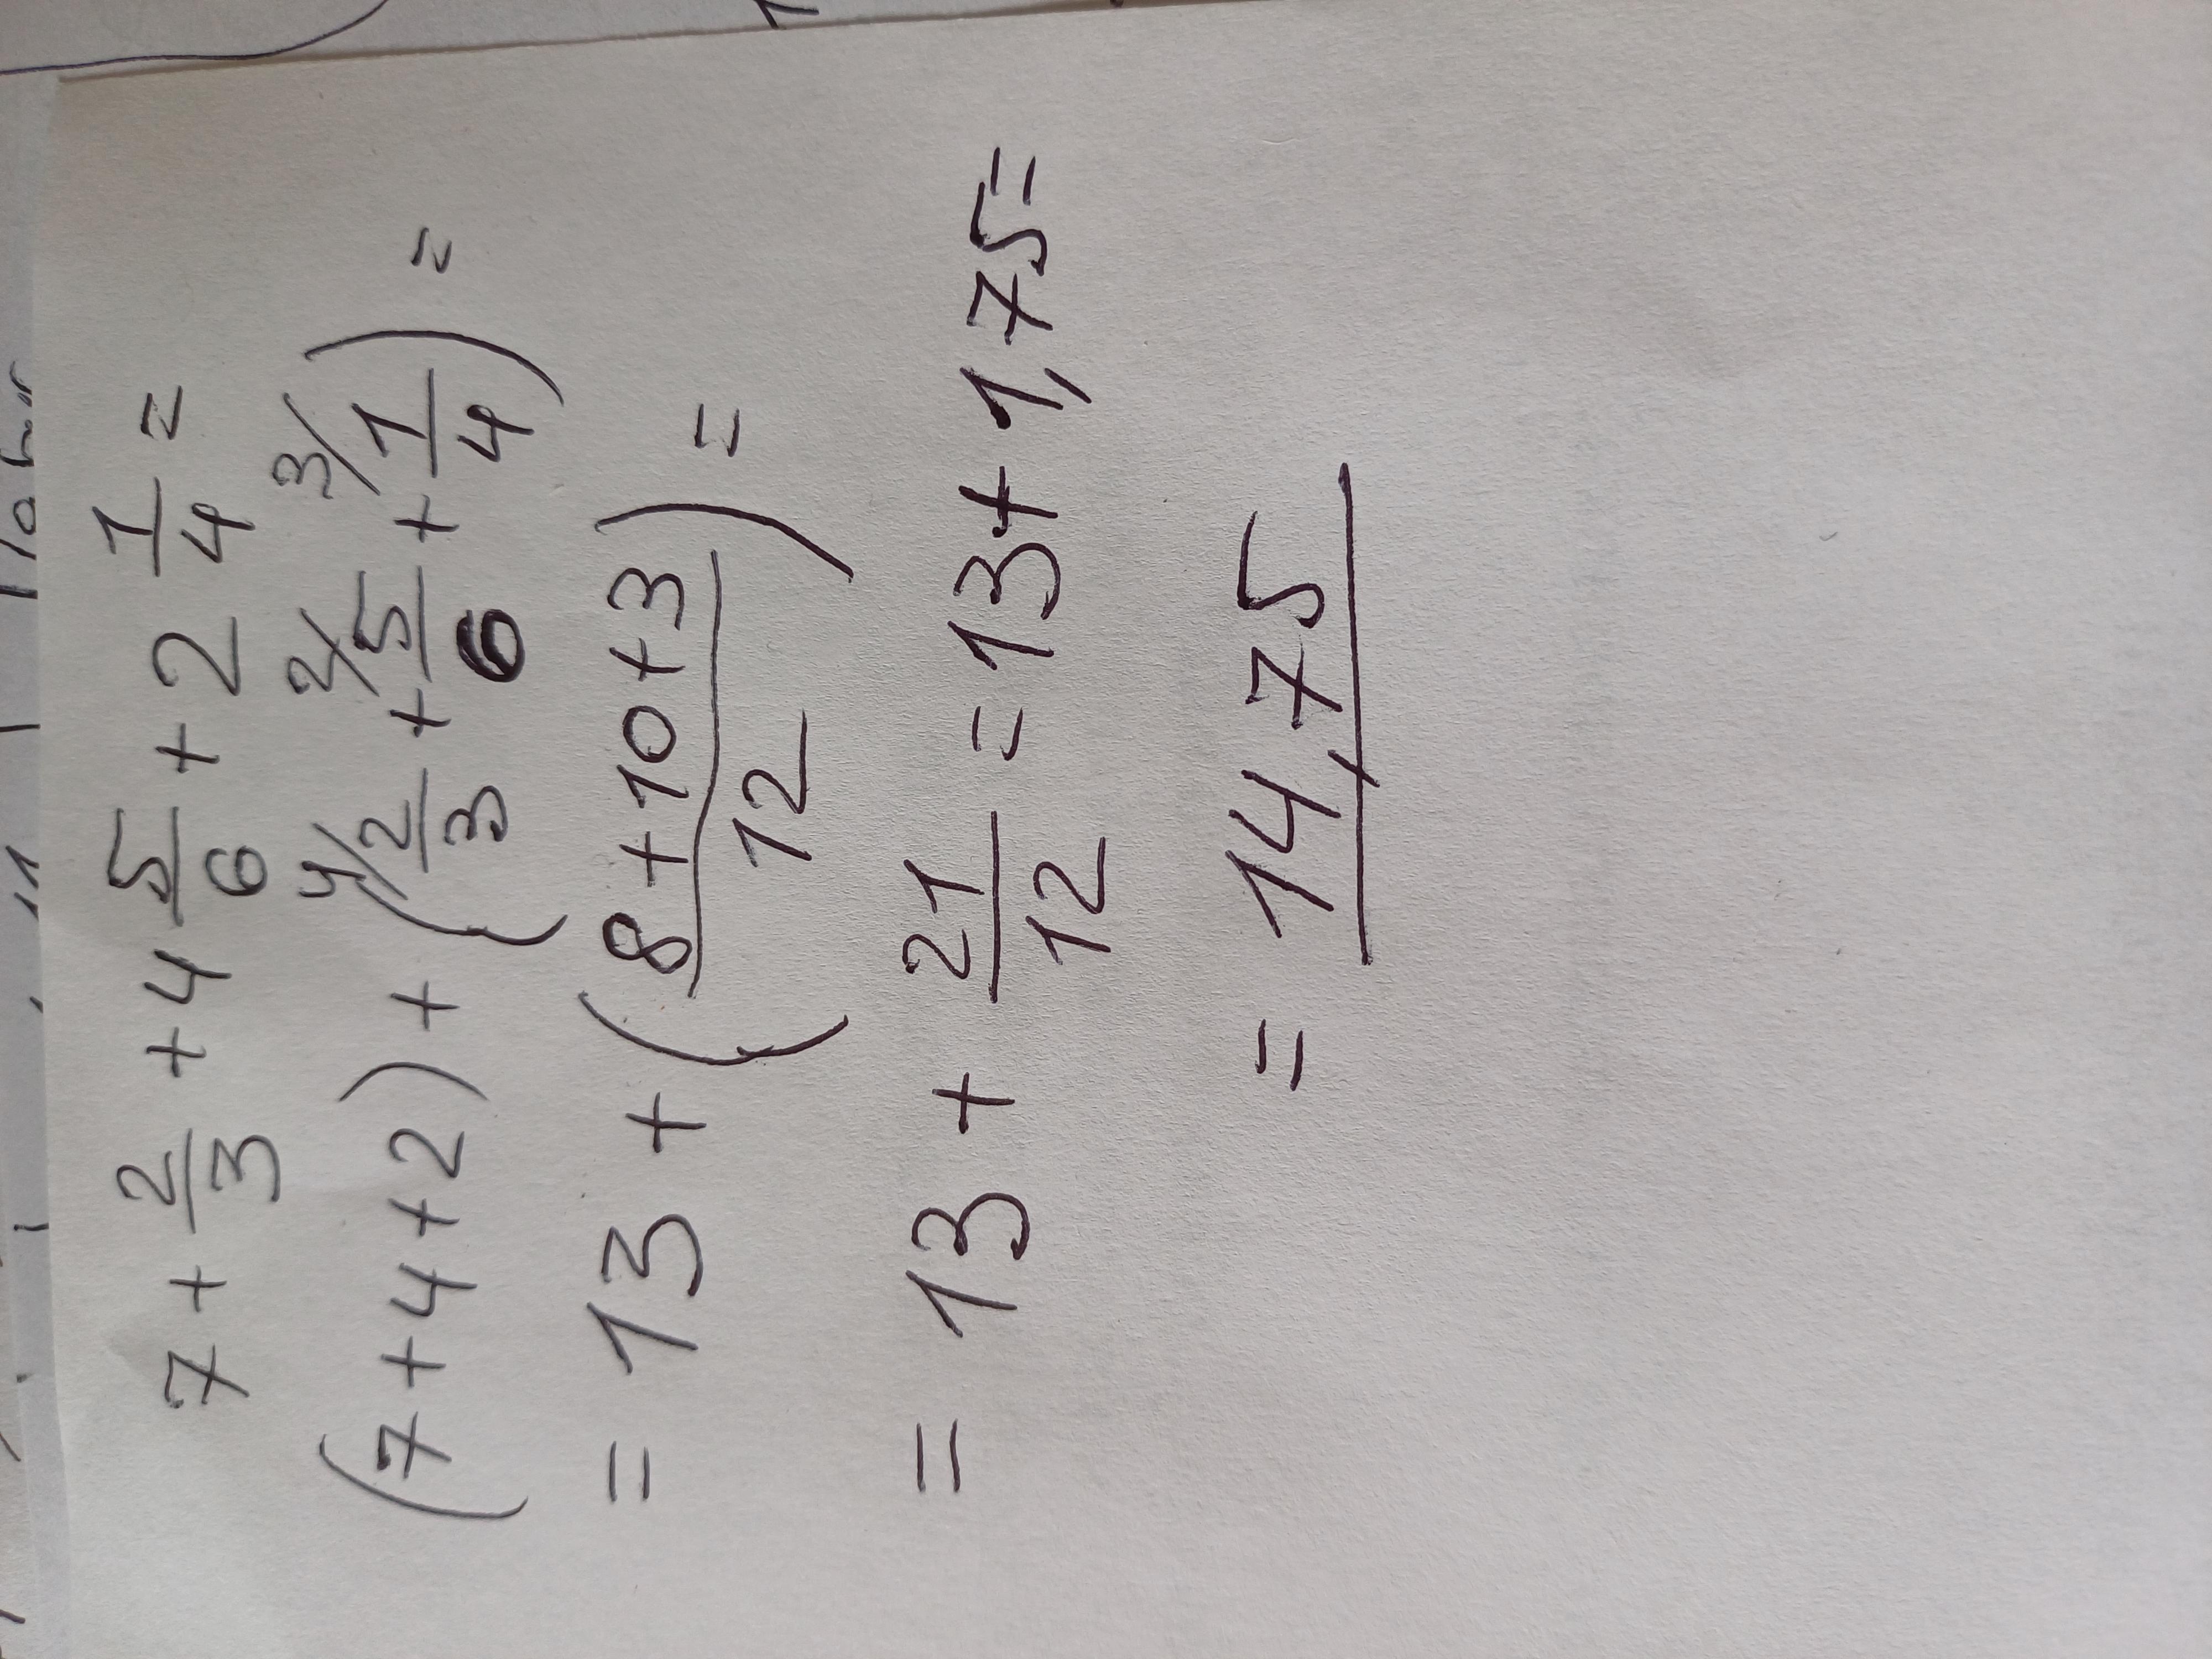 7 + 2/3 + 4 5/6 + 2 1/4 =
(7+4+2) + (4/ 2/3 + 2/ 5/6 + 3/ 1/4) =
= 13 + (8+10+3/12) =
= 13 + 21/12 = 13 + 1,75 =
= 14,75